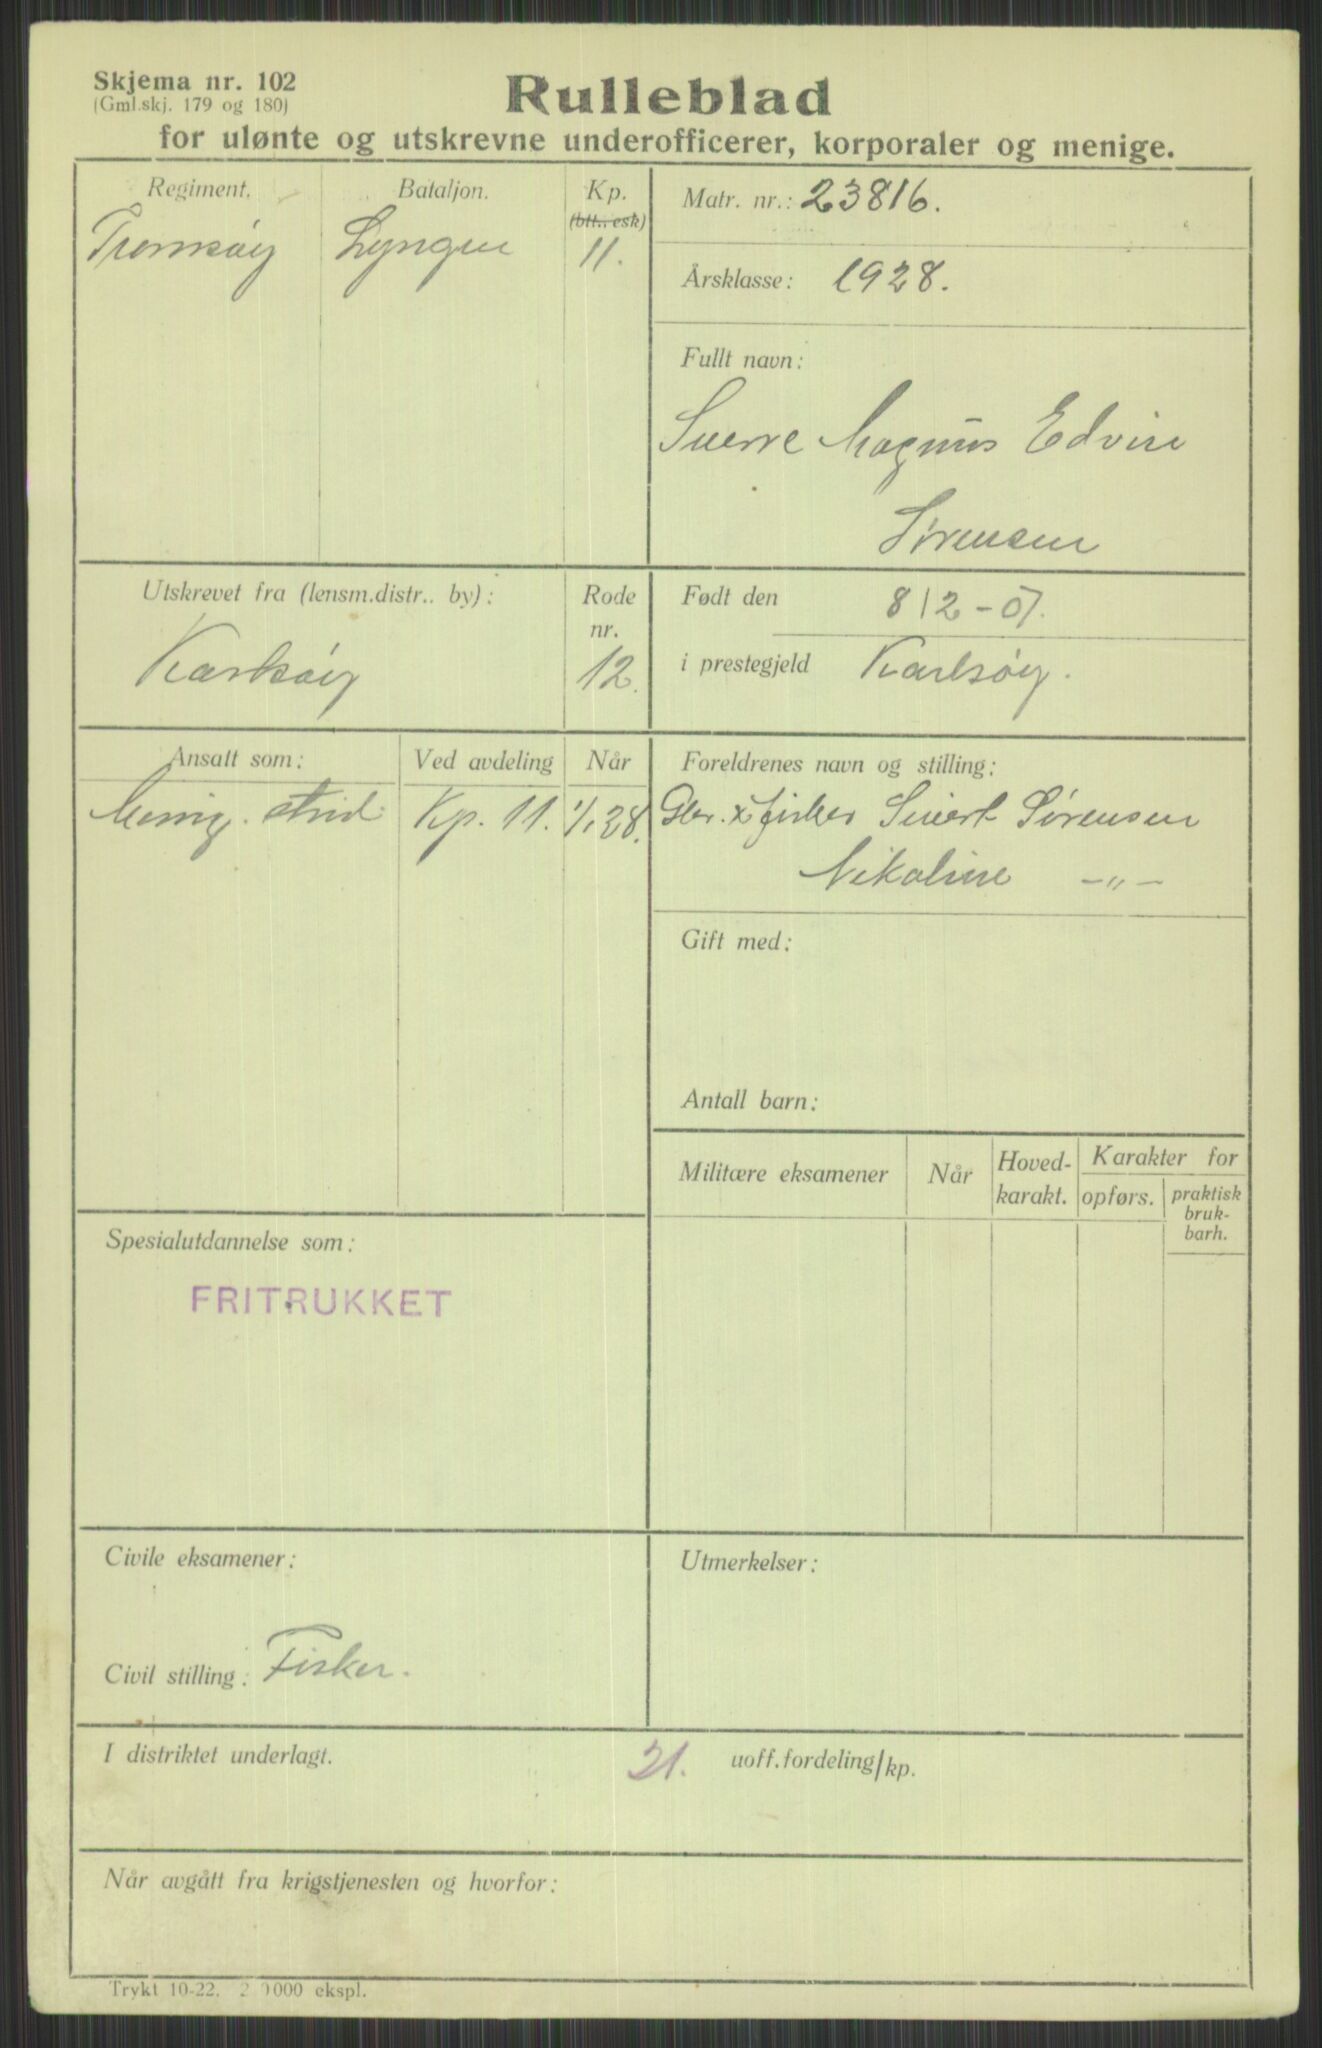 Skjema nr. 102
(Gml.skj. 179 og 180)
Rulleblad
for ulønte og utskrevne underofficerer, korporaler og menige.
Regiment.
Bataljon.
Kp.
(btt., esk)
Tromsøy
Lyngen
11.
Matr. nr.: 23816.
Årsklasse: 1928.
Fullt navn:
Sverre Magnus Edvin
Sørensen
Utskrevet fra (lensm.distr.. by):
Karlsøy
Rode
nr.
12.
Født den 8 12-07.
i prestegjeld Karlsøy.
Ansatt som:
Ved avdeling
Når
Menig. strid
Kp. 11.
1/1 28.
Foreldrenes navn og stilling:
Gbr. x fisker Sivert Sørensen
Nikoline -"-
Gift med:
Antall barn:
Militære eksamener
Når
Hoved-
karakt.
Karakter for
opførs.
praktisk
bruk-
barh.
Spesialutdannelse som:
FRITRUKKET
Civile eksamener:
Civil stilling: Fisker.
Utmerkelser:
I distriktet underlagt. 21. uoff.fordeling/kp.
Når avgått fra krigstjenesten og hvorfor:
Trykt 10-22. 2 0000 ekspl.